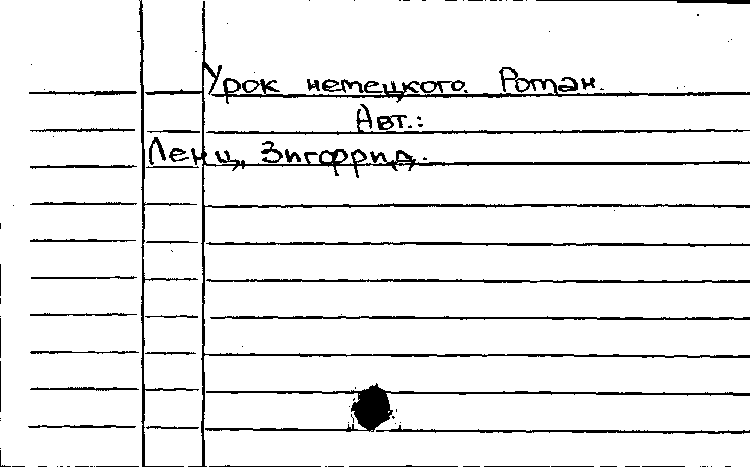 Урок немецкого. Роман.
Авт.:
Ленц, Зигфрид.